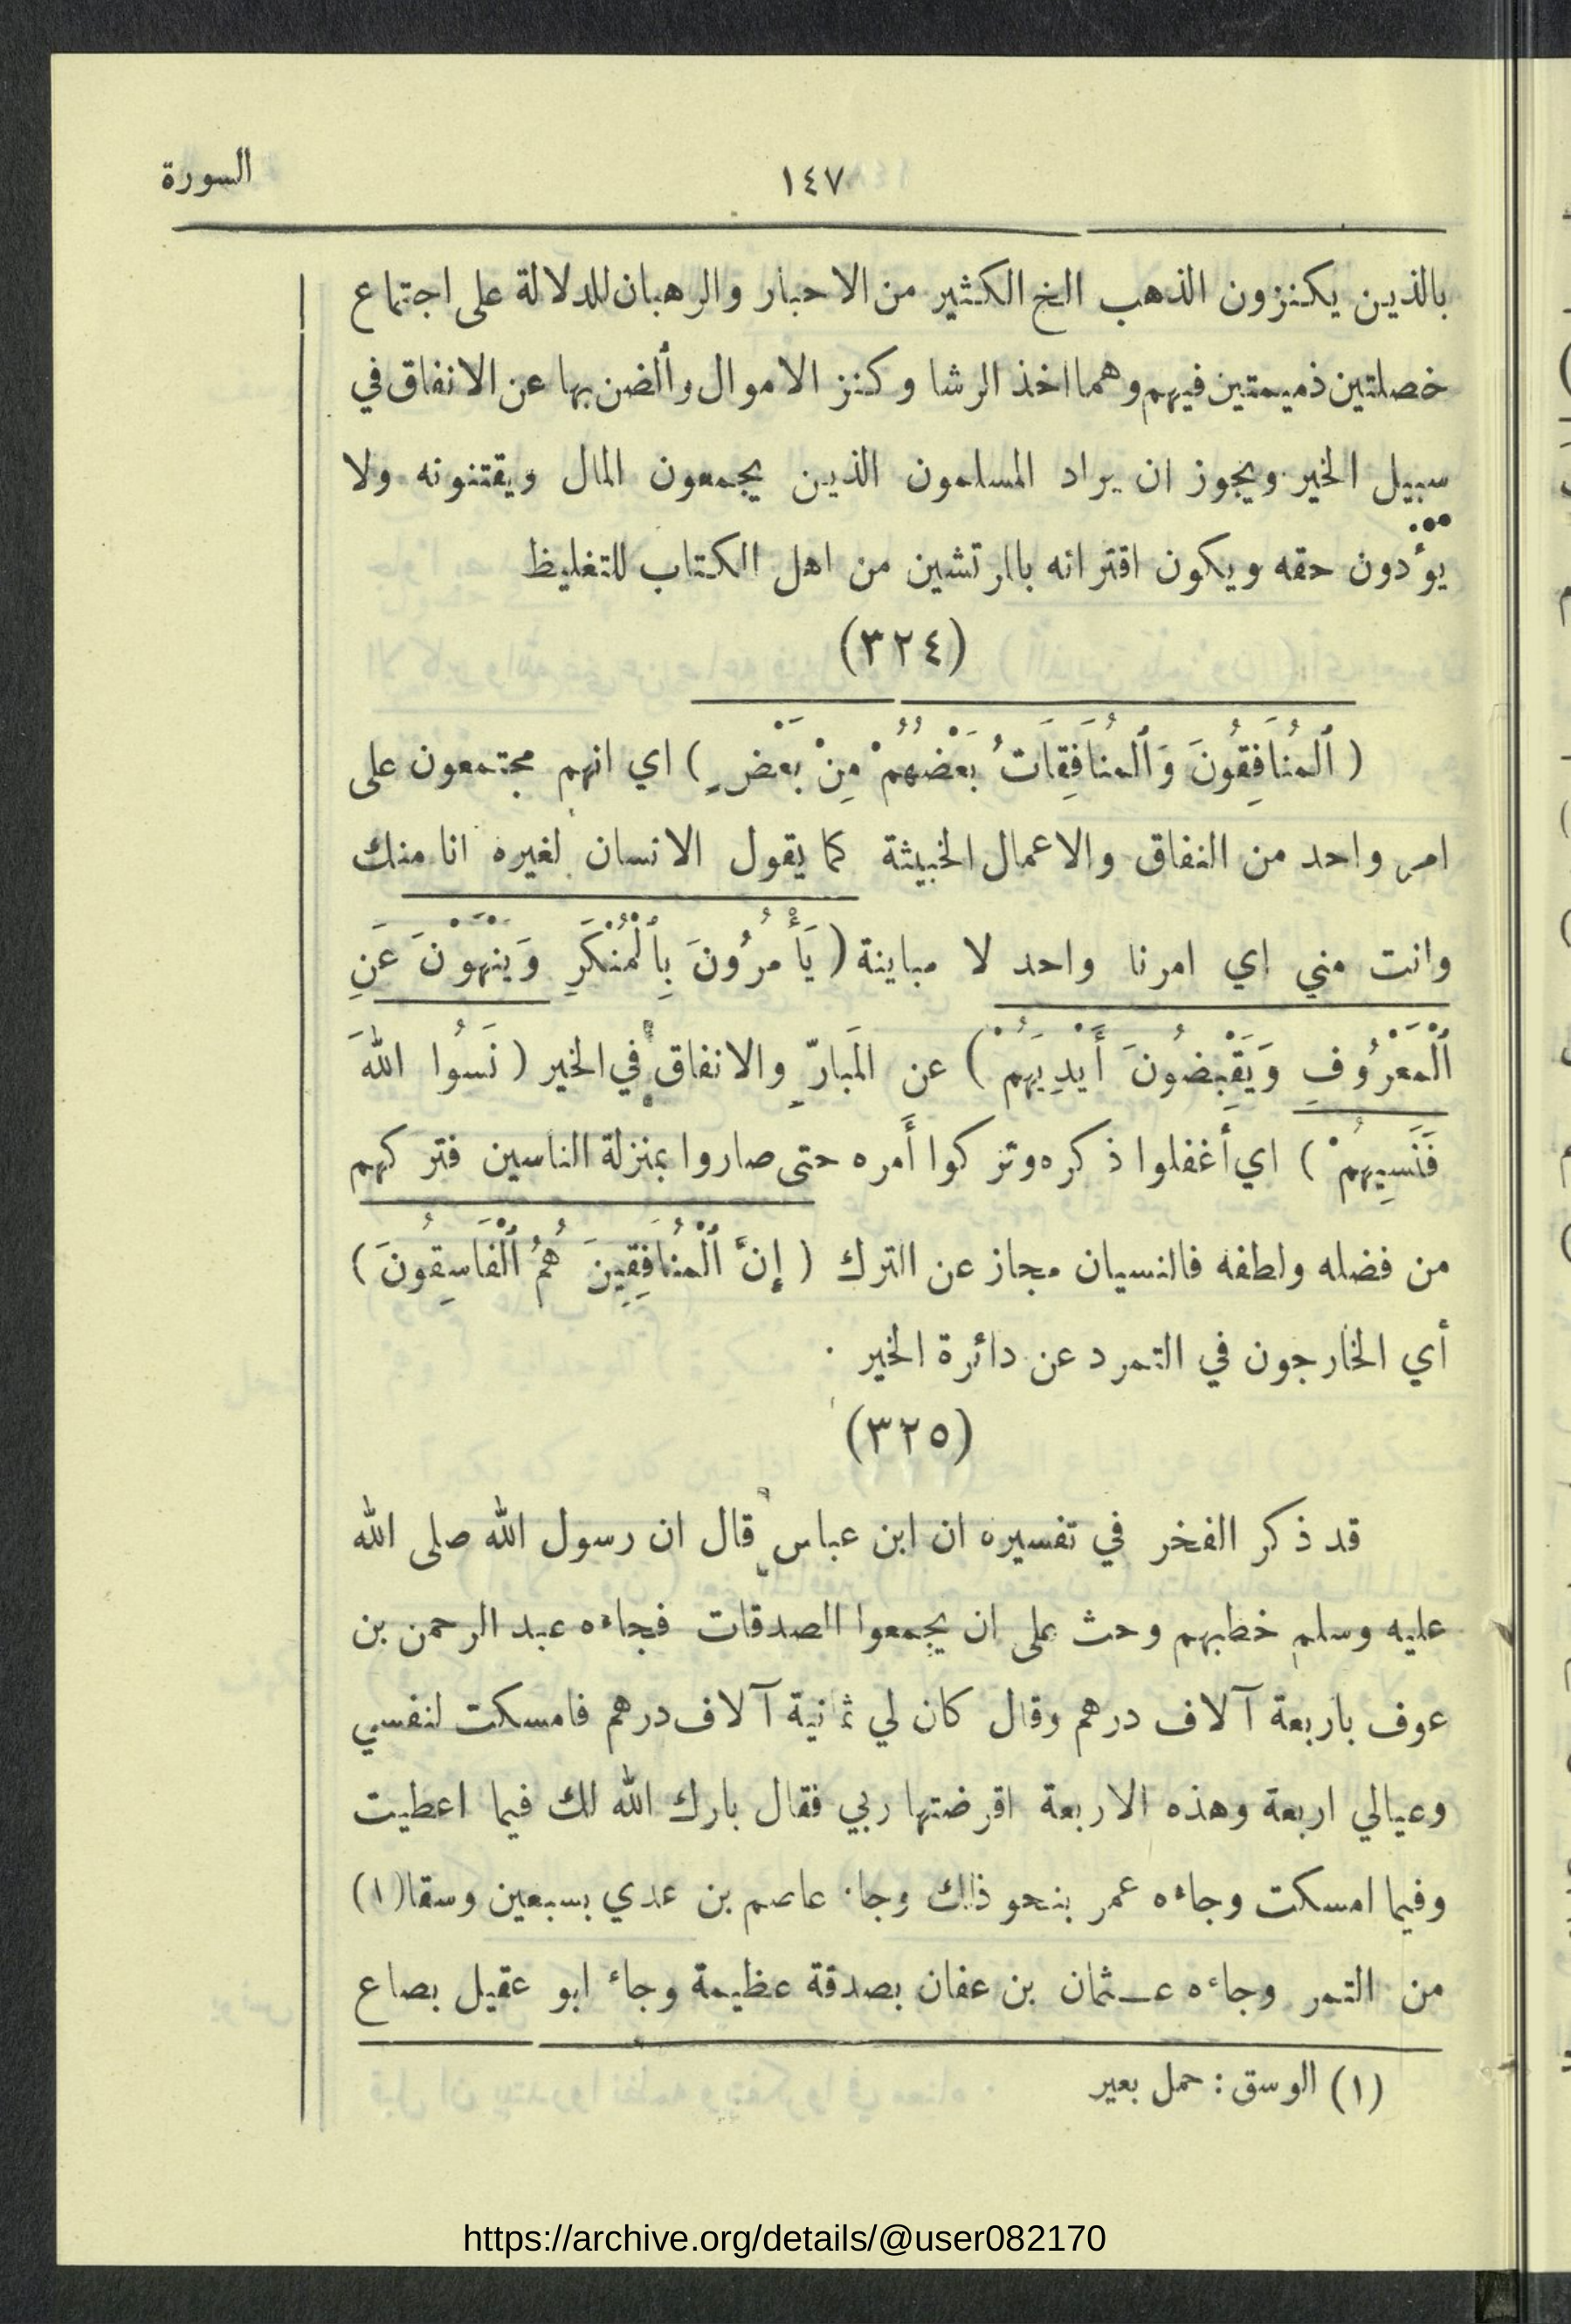 السورة
١٤٧
بالذين يكنزون الذهب الخ الكثير من الاحبار والرهبان للدلالة على اجتماع
خصلتين ذميمتين فيهم وهما اخذ الرشا وكنز الاموال وألضن بها عن الانفاق في
سبيل الخير ويجوز ان يراد المسلمون الذين يجمعون المال ويقتنونه ولا
يؤدون حقه ويكون اقترانه بالمرتشين من اهل الكتاب للتغليظ
(٣٢٤)
( ٱلمُنَافِقُونَ وَٱلمُنَافِقَاتُ بَعْضُهُمْ مِنْ بَعْضٍ ) اي انهم مجتمعون على
امر واحد من النفاق والاعمال الخبيثة كما يقول الانسان لغيره انا منك
وانت مني اي امرنا واحد لا مباينة ( يَأْمُرُونَ بِٱلْمُنْكَرِ وَيَنْهَوْنَ عَنِ
ٱلْمَعْرُوفِ وَيَقْبِضُونَ أَيْدِيَهُمْ ) عن المَبارّ والانفاق في الخير ( نَسُوا اللهَ
فَنَسِيَهُمْ ) اي أغفلوا ذكره وتركوا أَمره حتى صاروا بمنزلة الناسين فتركهم
من فضله ولطفه فالنسيان مجاز عن الترك ( إِنَّ ٱلْمُنَافِقِينَ هُمُ ٱلْفَاسِقُونَ )
أي الخارجون في التمرد عن دائرة الخير ·
(٣٢٥)
قد ذكر الفخر في تفسيره ان ابن عباس قال ان رسول الله صلى الله
عليه وسلم خطبهم وحث على ان يجمعوا الصدقات فجاءه عبد الرحمن بن
عوف باربعة آلاف درهم وقال كان لي ثمانية آلاف درهم فامسكت لنفسي
وعيالي اربعة وهذه الاربعة اقرضتها ربي فقال بارك الله لك فيما اعطيت
وفيما امسكت وجاءه عمر بنحو ذلك وجاء عاصم بن عدي بسبعين وسقا(١)
من التمر وجاءه عـثمان بن عفان بصدقة عظيمة وجاء ابو عقيل بصاع
(١) الوسق : حمل بعير
https://archive.org/details/@user082170